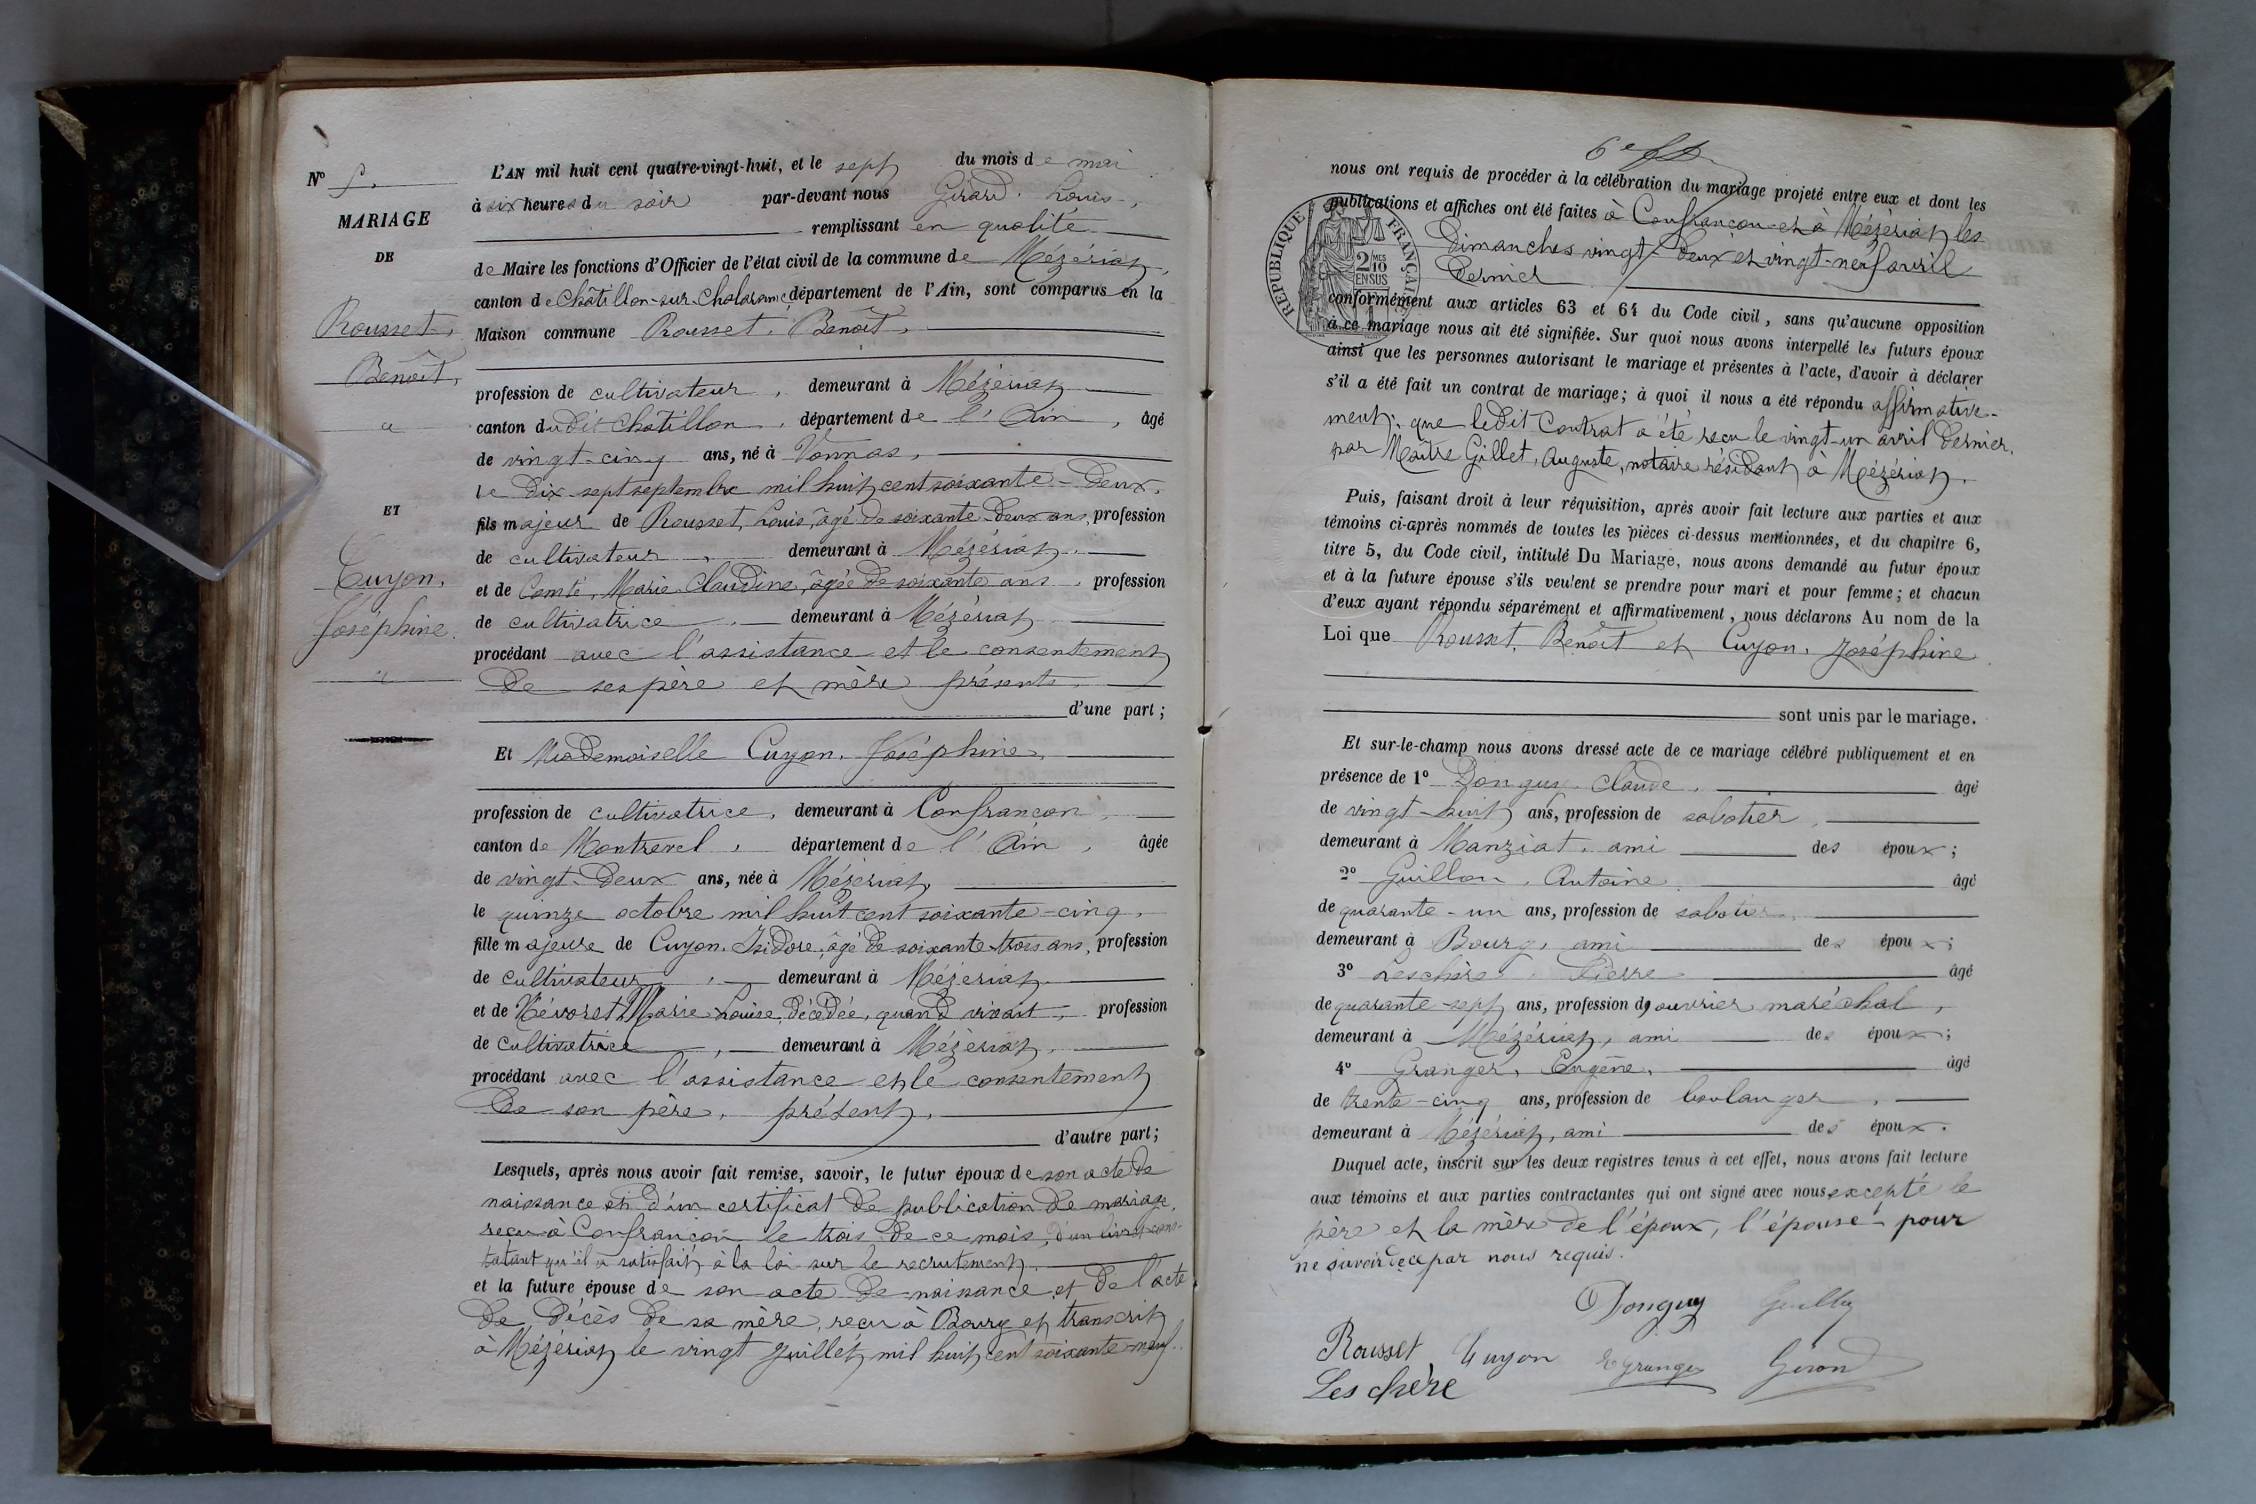 N° 8.
MARIAGE
DE
Rousset,
Benoît,
"
ET
Cuyon,
Joséphine.
"
L'AN mil huit cent quatre-vingt-huit, et le sept du mois de mai
à six heures du soir par-devant nous Girard, Louis,
remplissant en qualité
de Maire les fonctions d'Officier de l'état civil de la commune de Mézériat,
canton de Châtillon-sur-Chalaronne, département de l'Ain, sont comparus en la
Maison commune Rousset, Benoît,
profession de cultivateur, demeurant à Mézériat
canton dudit Châtillon, département de l'Ain, âgé
de vingt-cinq ans, né à Vonnas,
le dix-sept septembre mil huit cent soixante-deux,
fils majeur de Rousset, Louis, âgé de soixante-deux ans, profession
de cultivateur, demeurant à Mézériat,
et de Comte, Marie Claudine, âgée de soixante ans, profession
de cultivatrice, demeurant à Mézériat
procédant avec l'assistance et le consentement
de ses père et mère présents,
d'une part;
Et Mademoiselle Cuyon, Joséphine,
profession de cultivatrice, demeurant à Confrançon,
canton de Montrevel, département de l'Ain, âgée
de vingt-deux ans, née à Mézériat,
le quinze octobre mil huit cent soixante-cinq,
fille majeure de Cuyon, Isidore, âgé de soixante-trois ans, profession
de cultivateur, demeurant à Mézériat
et de Névoret Marie Louise, décédée, quand vivait, profession
de cultivatrice, demeurant à Mézériat,
procédant avec l'assistance et le consentement
de son père, présent,
d'autre part;
Lesquels, après nous avoir fait remise, savoir, le futur époux de son acte de
naissance et d'un certificat de publication de mariage,
reçu à Confrançon le trois de ce mois, d'un livret cons-
tatant qu'il a satisfait à la loi sur le recrutement,
et la future épouse de son acte de naissance et de l'acte
de décès de sa mère, reçu à Bourg et transcrit
à Mézériat le vingt juillet mil huit cent soixante neuf.
6e
nous ont requis de procéder à la célébration du mariage projeté entre eux et dont les
publications et affiches ont été faites à Confrançon et à Mézériat les
dimanches vingt-deux et vingt-neuf avril
dernier
REPUBLIQUE FRANÇAISE
2 MES
10
EN SUS
conformément aux articles 63 et 64 du Code civil, sans qu'aucune opposition
à ce mariage nous ait été signifiée. Sur quoi nous avons interpellé les futurs époux
ainsi que les personnes autorisant le mariage et présentes à l'acte, d'avoir à déclarer
s'il a été fait un contrat de mariage; à quoi il nous a été répondu affirmative-
ment; que ledit contrat a été reçu le vingt-un avril dernier,
par Maître Gillet, Auguste, notaire résidant à Mézériat.
Puis, faisant droit à leur réquisition, après avoir fait lecture aux parties et aux
témoins ci-après nommés de toutes les pièces ci-dessus mentionnées, et du chapitre 6,
titre 5, du Code civil, intitulé Du Mariage, nous avons demandé au futur époux
et à la future épouse s'ils veulent se prendre pour mari et pour femme; et chacun
d'eux ayant répondu séparément et affirmativement, nous déclarons Au nom de la
Loi que Rousset, Benoît et Cuyon, Joséphine
sont unis par le mariage.
Et sur-le-champ nous avons dressé acte de ce mariage célébré publiquement et en
présence de 1° Donguy, Claude, âgé
de vingt-huit ans, profession de sabotier,
demeurant à Manziat, ami des époux;
2° Guillon, Antoine, âgé
de quarante-un ans, profession de sabotier,
demeurant à Bourg, ami des époux;
3° Leschère, Pierre âgé
de quarante-sept ans, profession d'ouvrier maréchal,
demeurant à Mézériat, ami des époux;
4° Granger, Eugène, âgé
de trente-cinq ans, profession de boulanger,
demeurant à Mézériat, ami des époux.
Duquel acte, inscrit sur les deux registres tenus à cet effet, nous avons fait lecture
aux témoins et aux parties contractantes qui ont signé avec nous excepté le
père et la mère de l'époux, l'épouse pour
ne savoir de ce par nous requis.
Donguy
Rousset Cuyon E Granger Girard
Leschère